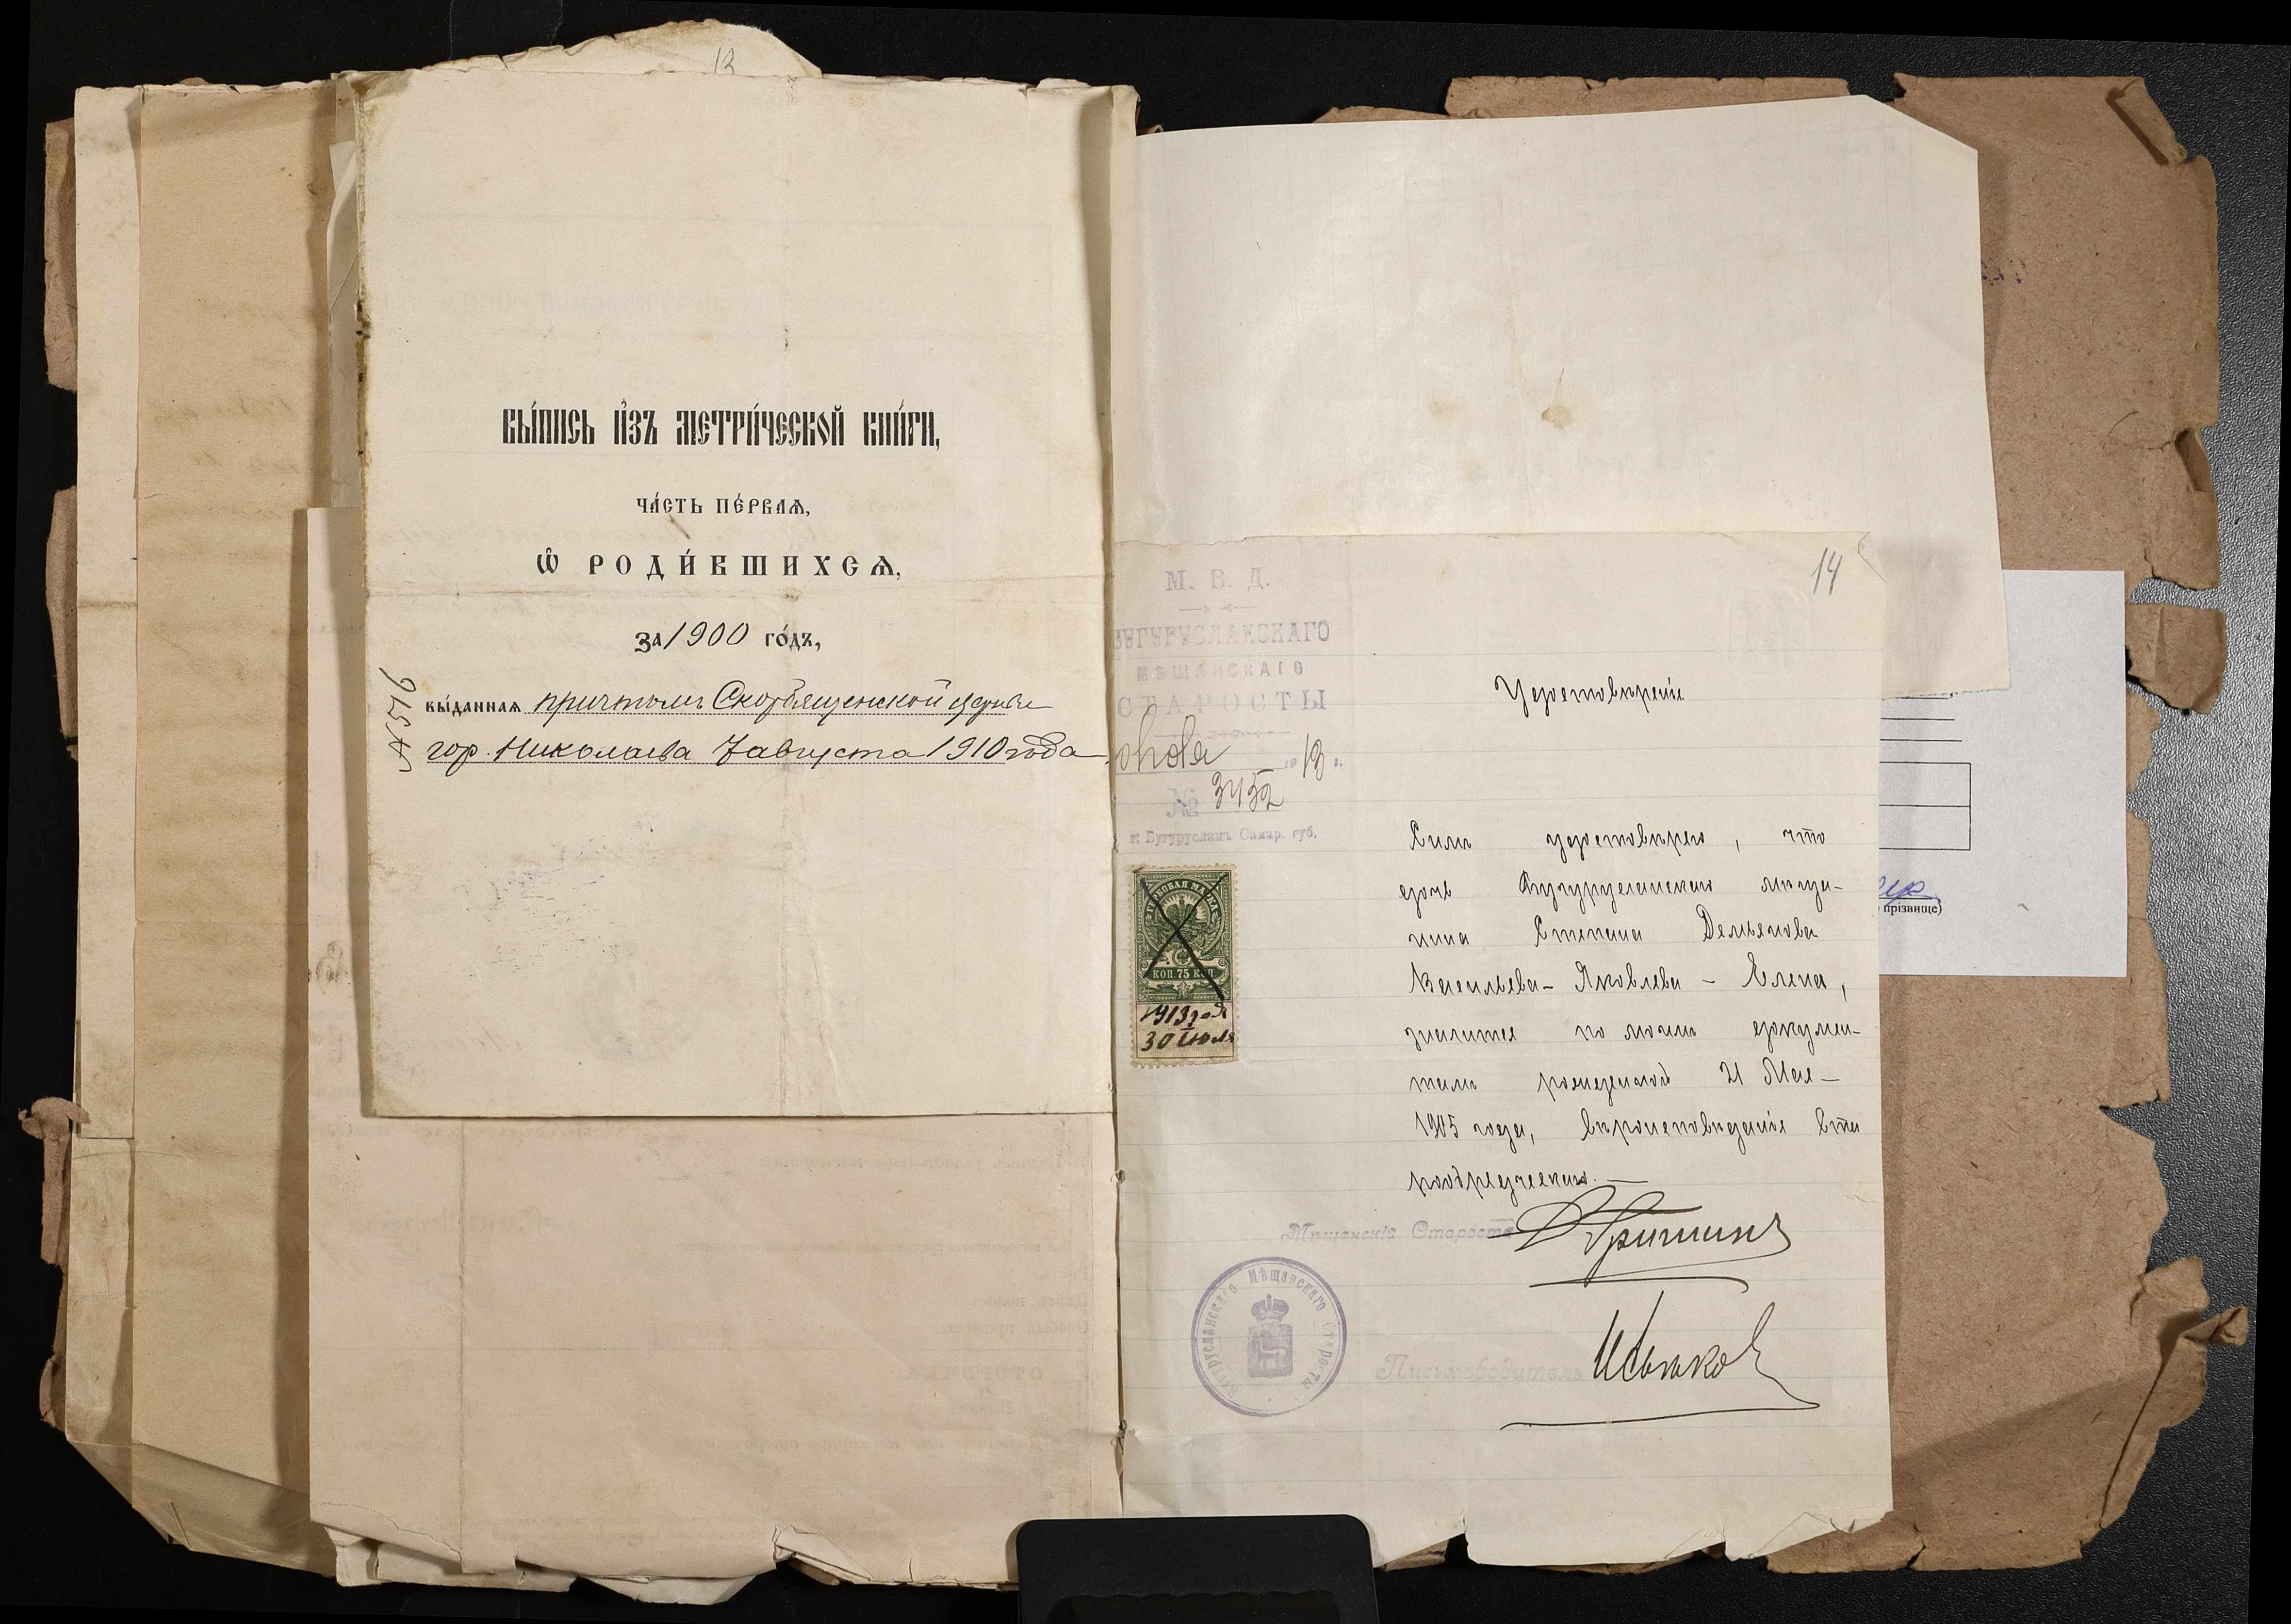 13
Вы́пись и҆зъ метри́ческой кни́ги,
ча́сть пе́рваѧ,
ѽ роди́вшихсѧ,
за 1900 го́дъ,
№ 516
вы́даннаѧ причтомъ Скорбященской церкви
гор. Николаева 7 августа 1910 года
14
М. В. Д.
БУГУРУСЛАНСКАГО
МѢЩАНСКАГО
СТАРОСТЫ
1913 г.
№ 3452
г. Бугурусланъ Самар. губ.
Удостовѣреніе
Симъ удостовѣряю, что
дочь Бугурусланскаго мѣща-
нина Степана Демьянова
Васильева-Яковлева - Елена,
значится по моимъ докумен-
тамъ рожденной 21 Мая
1905 года, вѣроисповѣданія
ГЕРБОВАЯ МАРКА
КОП. 75 КОП.
1913 года
30 Іюля
Мѣщанскій Староста
Бугурусланскаго Мѣщанскаго Старосты
Письмоводитель
прізвище)